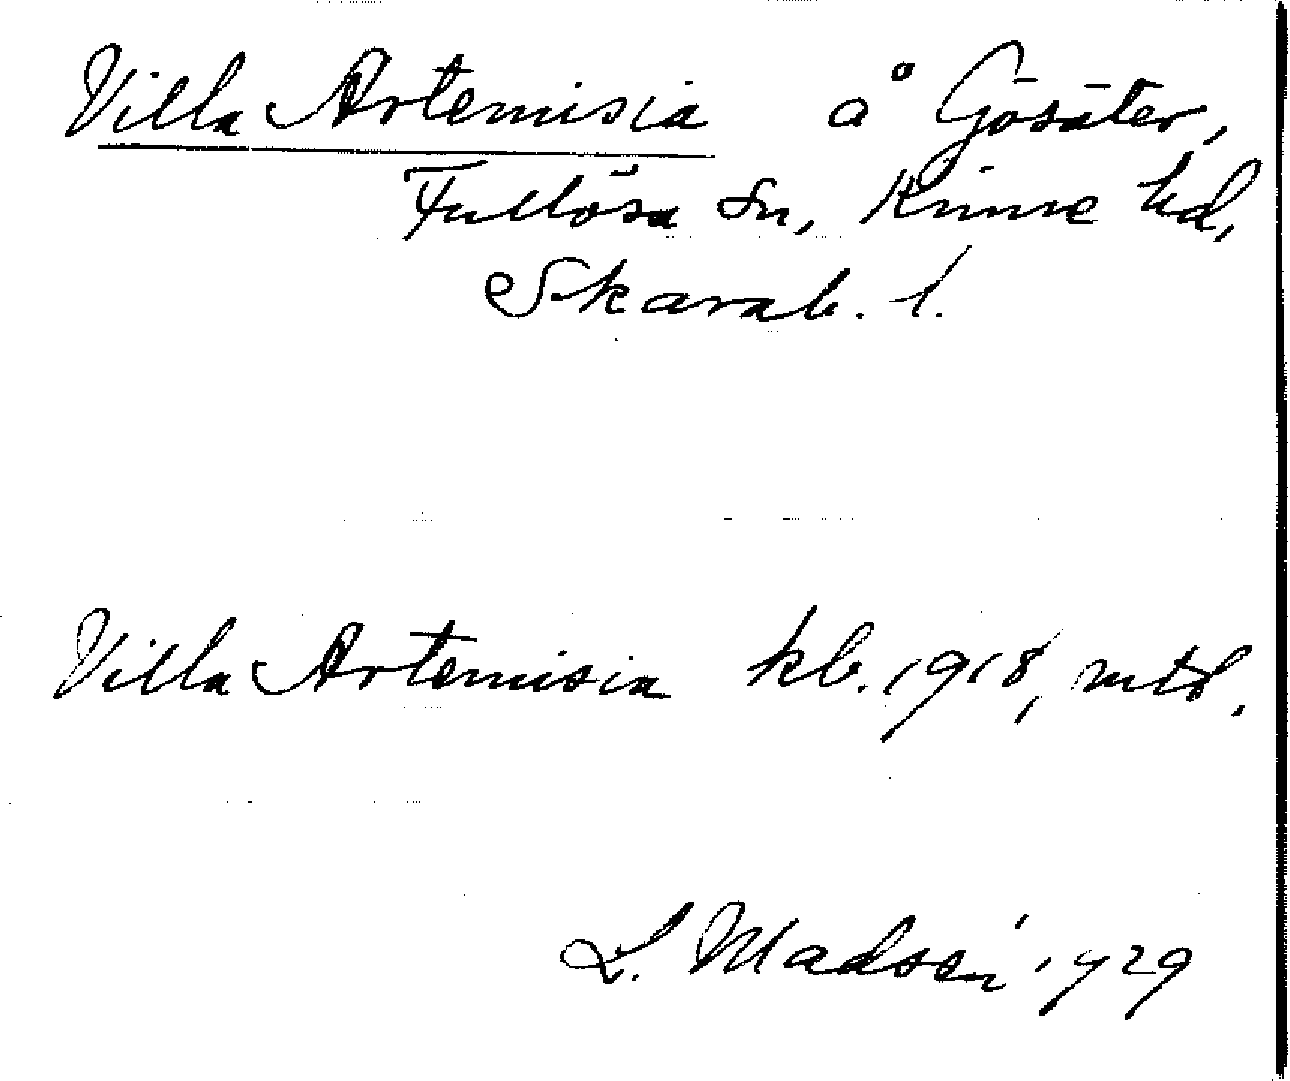 Villa Artemisia å Gösäter,
Fullösa sn, Kinne hd,
Skarab. l.
Villa Artemisia kb. 1918, mtl.
L. Madsén 1929